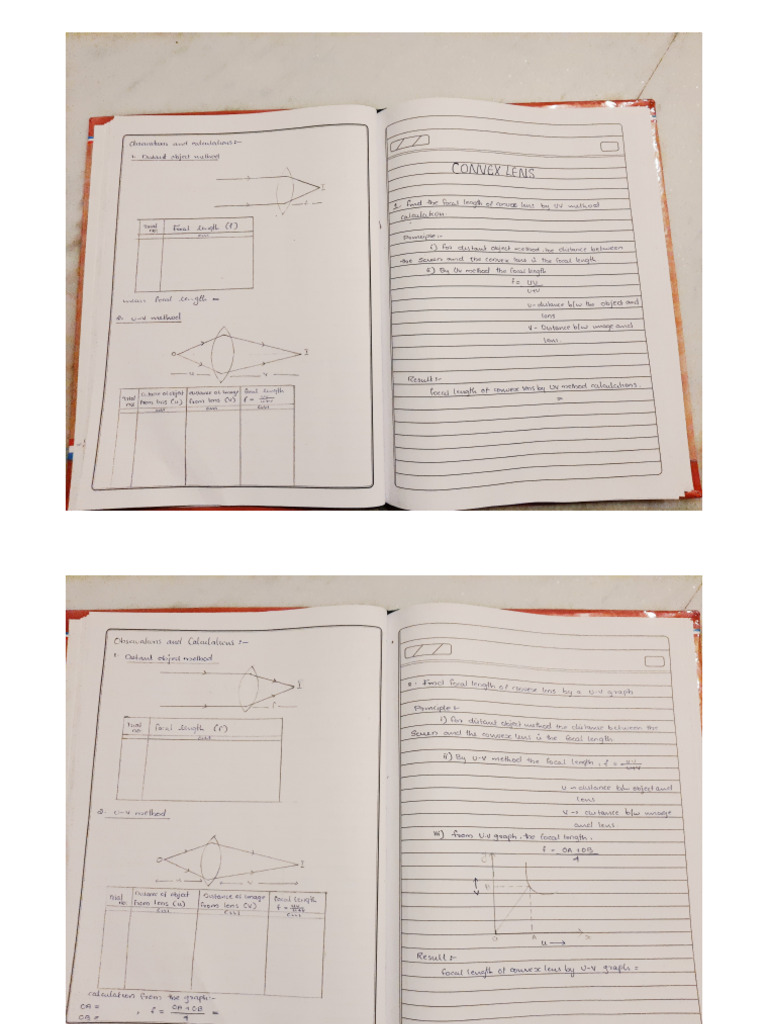 Observations and calculations:-
1. Distant object method
I
f
Trial no
Focal length (f)
cm
mean focal length =
2. u-v method
O
I
u
v
Trial no
Distance of object from lens (u)
cm
Distance of image from lens (v)
cm
focal length f = uv/u+v
cm
CONVEX LENS
1. Find the focal length of convex lens by UV method
calculation.
Principle:-
i) For distant object method the distance between
the screen and the convex lens is the focal length
ii) By UV method the focal length
f = UV
U+V
u - distance b/w the object and
lens
v - Distance b/w image and
lens.
Result:-
Focal length of convex lens by UV method calculations.
=
Observations and Calculations:-
1. Distant object method
I
f
Trial no.
Focal length (f)
cm
2. U-V method
O
I
u
v
Trial no.
Distance of object from lens (u)
cm
Distance of image from lens (v)
cm
focal length f = uv/u+v
cm
calculation from the graph:-
OA =
OB =
, f = OA + OB =
4
Find focal length of convex lens by a U-V graph
Principle:-
i) For distant object method the distance between the
Screen and the convex lens is the focal length
ii) By U-V method the focal length, f = u.v/u+v
u = distance b/w object and
lens
v = distance b/w image
and lens.
iii) From U.V graph. the focal length.
f = OA + OB
4
B
O
A
u →
x
Result:-
focal length of convex lens by U-V graph =